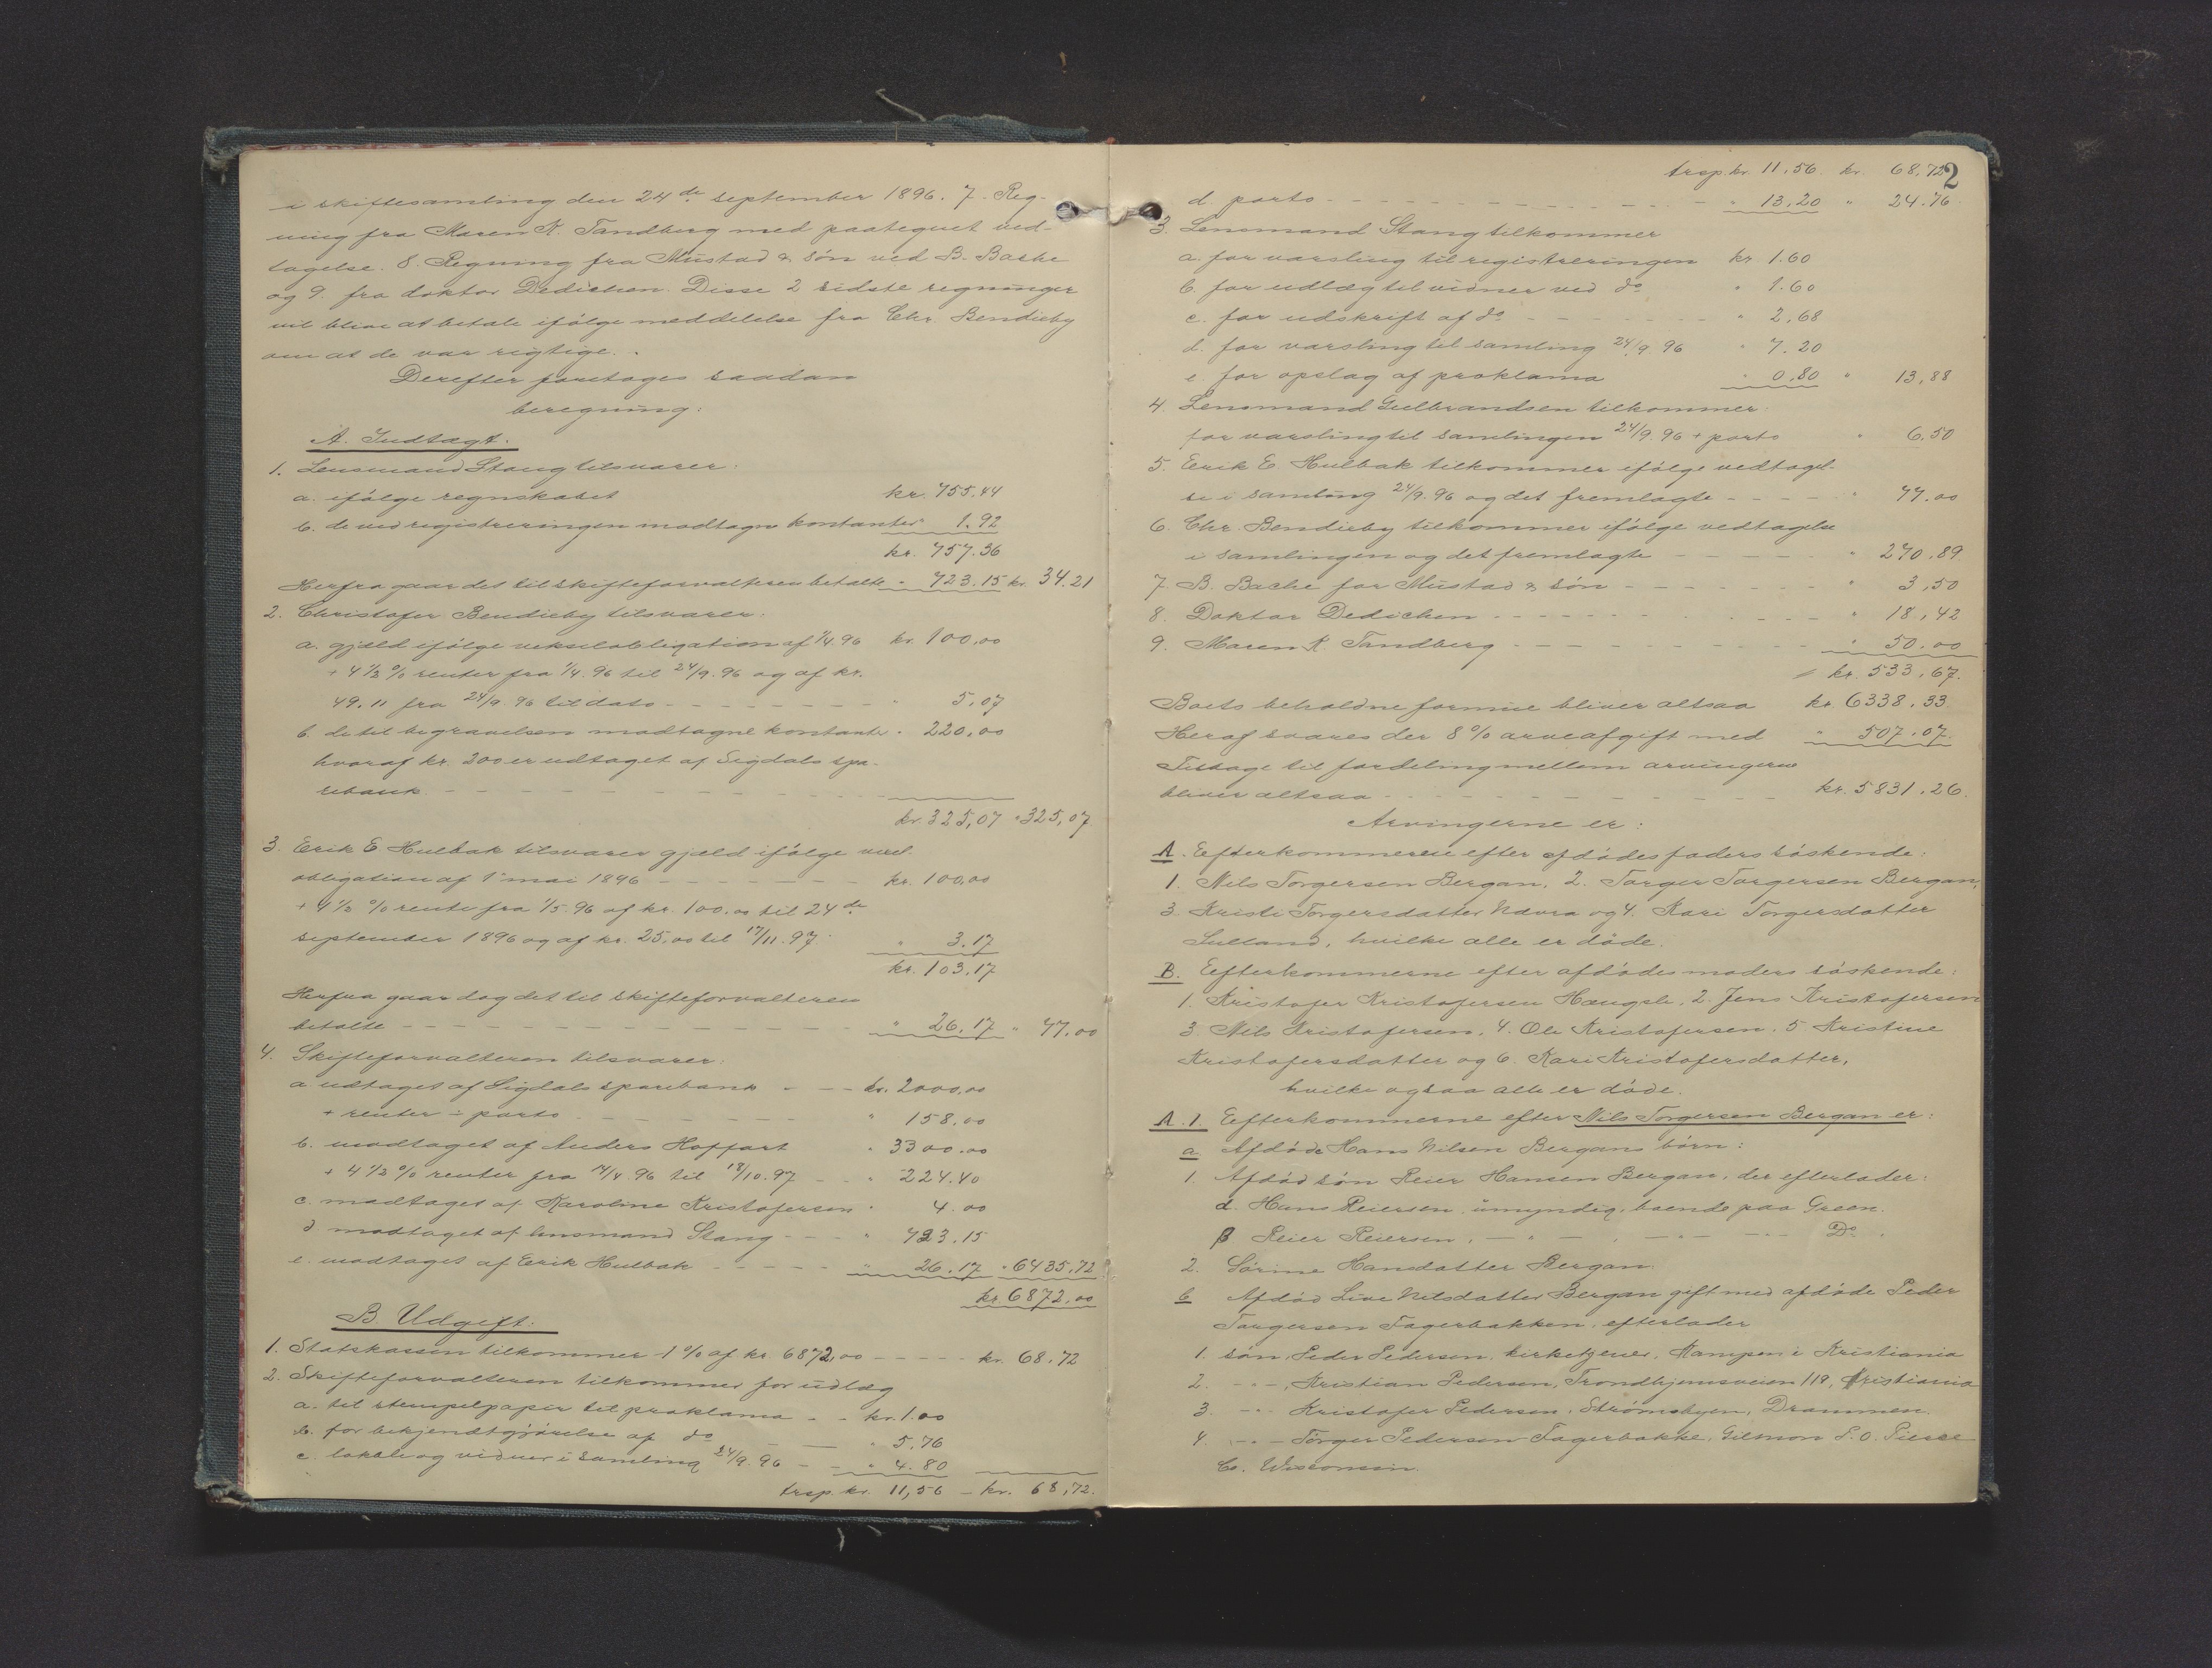 i skiftesamling den 24de september 1896. 7. Reg-
ning fra Maren K. Tandberg med paategnet ved-
tagelse. 8. Regning fra Mustad & søn ved B. Bache
og 9. fra doktor Dedichen. Disse 2 sidste regninger
vil blive at betale ifølge meddelelse fra Chr. Bendieby
om at de var rigtige.
Derefter foretages saadan
beregning:
A. Indtægt:
1. Lensmand Stang tilsvarer:
a. ifølge regnskabet kr. 755.44
b. de ved registreringen modtagne kontanter " 1.92
kr. 757.36
Herfra gaar det til skifteforvalteren betalte " 723.15 kr. 34.21
2. Christofer Bendieby tilsvarer:
a. gjæld ifølge vekselobligation af 1/4.96 kr. 100.00
+ 4 1/2 % renter fra 1/4.96 til 24/9.96 og af kr.
49.11 fra 24/9.96 til dato - - - " 5.07
b. de til begravelsen modtagne kontanter " 220.00
hvoraf kr. 200 er udtaget af Sigdals spa-
rebank - - -
kr. 325,07 " 325,07
3. Erik E Hulbak tilsvarer gjæld ifølge vexel-
obligation af 1. mai 1896 - - - kr. 100,00
+ 4 1/2 % rente fra 1/5.96 af kr. 100.00 til 24de
september 1896 og af kr. 25,00 til 17/11.97 " 3.17
kr. 103,17
Herfra gaar dog det til skifteforvalteren
betalte - - - " 26.17 " 77.00
4. Skifteforvalteren tilsvarer:
a. udtaget af Sigdals sparebank - - - kr. 2000,00
+ renter ÷ porto - - - " 158.00
b. modtaget af Anders Hoffart " 3300.00
+ 4 1/2 % renter fra 14/4.96 til 18/10.97 - - " 224.40
c. modtaget af Karoline Kristofersen " 4.00
d. modtaget af lensmand Stang - - - " 723.15
e. modtaget af Erik Hulbak - - - " 26.17 " 6435.72
kr. 6872.00
B. Udgift:
1. Statskassen tilkommer 1 % af kr. 6872,00 - - - kr. 68.72
2. Skifteforvalteren tilkommer for udlæg
a. til stempelpapir til proklama - - kr. 1.00
b. for bekjendtgjørelse af do - - " 5.76
c. lokale og vidner i samling 24/9.96 - - " 4.80
trsp. kr. 11,56 - kr. 68,72.
2
trsp. kr. 11.56. kr. 68,72
d. porto - - - " 13.20 " 24.76
3. Lensmand Stang tilkommer
a. for varsling til registreringen kr 1.60
b. for udlæg til vidner ved do " 1.60
c. for udskrift af do - - - " 2,68
d. for varsling til samling 24/9.96 " 7.20
e. for opslag af proklama " 0.80 " 13,88
4. Lensmand Gulbrandsen tilkommer:
for varsling til samlingen 24/9.96 + porto " 6.50
5. Erik E. Hulbak tilkommer ifølge vedtagel-
se i samling 24/9.96 og det fremlagte - - - " 77.00
6. Chr. Bendieby tilkommer ifølge vedtagelse
i samlingen og det fremlagte - - - " 270.89
7. B. Bache for Mustad & søn - - - " 3,50
8. Doktor Dedichen - - - " 18,42
9. Maren K. Tandberg - - - " 50.00
kr. 533,67.
Boets beholdne formue bliver altsaa kr. 6338.33
Heraf svares der 8 % arveafgift med " 507.07.
Tilbage til fordeling mellem arvingerne
bliver altsaa - - - kr. 5831.26.
Arvingerne er:
A. Efterkommerne efter afdødes faders søskende:
1. Nils Torgersen Bergan, 2. Torger Torgersen Bergan,
3. Kristi Torgersdatter Narra og 4. Kari Torgersdatter
Lulland, hvilke alle er døde.
B. Efterkommerne efter afdødes moders søskende:
1. Kristofer Kristofersen Haugsle, 2. Jens Kristofersen
3. Nils Kristofersen, 4. Ole Kristofersen, 5 Kristine
Kristofersdatter og 6. Kari Kristofersdatter,
hvilke ogsaa alle er døde.
A. 1. Efterkommerne efter Nils Torgersen Bergan er:
a Afdøde Hans Nilsen Bergans børn:
1. Afdød søn Reier Hansen Bergan, der efterlader:
α. Hans Reiersen, umyndig, boende paa Green.
β Reier Reiersen, - " - , - " - - " - Do.
2. Sørine Hansdatter Bergan.
b Afdød Live Nilsdatter Bergan gift med afdøde Peder
Torgersen Fagerbakken, efterlader
1. søn, Peder Pedersen, kirketjener, Kampen i Kristiania
2. - " -, Kristian Pedersen, Trondhjemsveien 119, Kristiania
3. - " - Kristofer Pedersen, Strømsbyen, Drammen.
4. - " - Torger Pedersen Fagerbakke, Gilmon P.O. Pierce
Co. Wisconsin.